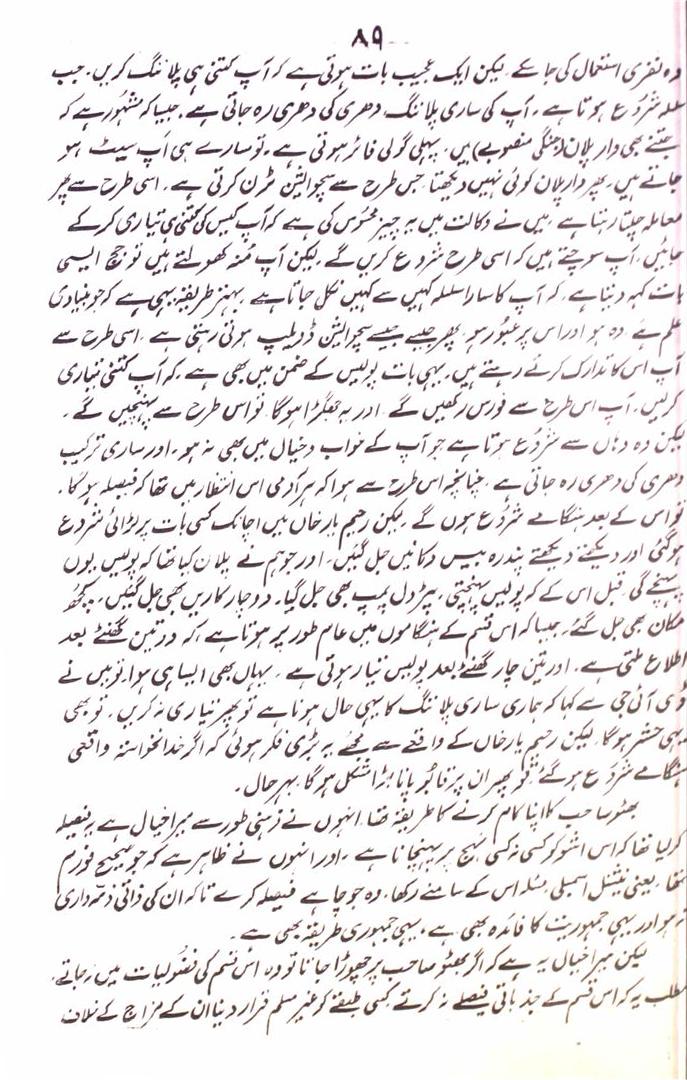 ۸۹
وہ نفری استعمال کی جا سکے۔ لیکن ایک عجیب بات ہوتی ہے کہ آپ کتنی ہی پلاننگ کریں۔ جب
سلسلہ شروع ہوتا ہے۔ آپ کی ساری پلاننگ دھری کی دھری رہ جاتی ہے۔ جیسا کہ مشہور ہے کہ
جتنے بھی وار پلان (جنگی منصوبے) ہیں، پہلی گولی فائر ہوتی ہے۔ تو سارے ہی اَپ سیٹ ہو
جاتے ہیں۔ پھر وار پلان کوئی نہیں دیکھتا، جس طرح سے سچوایشن ٹرن کرتی ہے۔ اسی طرح سے پھر
معاملہ چلتا رہتا ہے، میں نے وکالت میں یہ چیز محسوس کی ہے کہ آپ کیس کی کتنی ہی تیاری کر کے
جائیں، آپ سوچتے ہیں کہ اسی طرح شروع کریں گے۔ لیکن آپ مُنہ کھولتے ہیں تو جج ایسی
بات کہہ دیتا ہے۔ کہ آپ کا سارا سلسلہ کہیں سے کہیں نکل جاتا ہے۔ بہتر طریقہ یہی ہے کہ جو بنیادی
علم ہے وہ ہو اور اس پر عبور ہو۔ پھر جیسے جیسے سچوایشن ڈویلپ ہوتی رہتی ہے۔ اسی طرح سے
آپ اس کا تدارک کرتے رہتے ہیں۔ یہی بات پولیس کے ضمن میں بھی ہے۔ کہ آپ کتنی تیاری
کر لیں۔ آپ اس طرح سے فورس رکھیں گے۔ اور یہ جھگڑا ہو گا۔ تو اس طرح سے پہنچیں گے۔
لیکن وہ وہاں سے شروع ہوتا ہے جو آپ کے خواب و خیال میں بھی نہ ہو۔ اور ساری ترکیب
دھری کی دھری رہ جاتی ہے۔ چنانچہ اس طرح سے ہوا کہ ہر آدمی اس انتظار میں تھا کہ فیصلہ ہو گا۔
تو اس کے بعد ہنگامے شروع ہوں گے۔ لیکن رحیم یار خاں میں اچانک کسی بات پر لڑائی شروع
ہو گئی اور دیکھتے دیکھتے پندرہ بیس دکانیں جل گئیں۔ اور جو ہم نے پلان کیا تھا کہ پولیس یوں
پہنچے گی، قبل اس کے کہ پولیس پہنچتی، پٹرول پمپ بھی جل گیا۔ دو چار کاریں بھی جل گئیں۔ کچھ
مکان بھی جل گئے۔ جیسا کہ اس قسم کے ہنگاموں میں عام طور پر ہوتا ہے۔ کہ دو تین گھنٹے بعد
اطلاع ملتی ہے۔ اور تین چار گھنٹے بعد پولیس تیار ہوتی ہے۔ یہاں بھی ایسا ہی ہوا۔ تو میں نے
ڈی آئی جی سے کہا کہ ہماری ساری پلاننگ کا یہی حال ہونا ہے تو پھر تیاری نہ کریں۔ تو بھی
یہی حشر ہو گا۔ لیکن رحیم یار خاں کے واقعے سے مجھے یہ بڑی فکر ہوئی کہ اگر خدانخواستہ واقعی
ہنگامے شروع ہو گئے، تو پھر ان پر قابو پانا بڑا مشکل ہو گا۔ بہر حال۔
بھٹو صاحب کا اپنا کام کرنے کا طریقہ تھا۔ انہوں نے ذہنی طور سے میرا خیال ہے یہ فیصلہ
کر لیا تھا کہ اس اشو کو کسی نہ کسی نہج پر پہنچانا ہے۔ اور انہوں نے ظاہر ہے کہ جو صحیح فورم
تھا، یعنی نیشنل اسمبلی، مسئلہ اس کے سامنے رکھا، وہ جو چاہے فیصلہ کرے تاکہ ان کی ذاتی ذمہ داری
نہ ہو اور یہی جمہوریت کا فائدہ بھی ہے۔ یہی جمہوری طریقہ بھی ہے۔
لیکن میرا خیال یہ ہے کہ اگر بھٹو صاحب پر چھوڑا جاتا تو وہ اس قسم کی فضولیات میں نہ جاتے،
مطلب یہ کہ اس قسم کے جذباتی فیصلے نہ کرتے کسی طبقے کو غیر مسلم قرار دینا ان کے مزاج کے خلاف